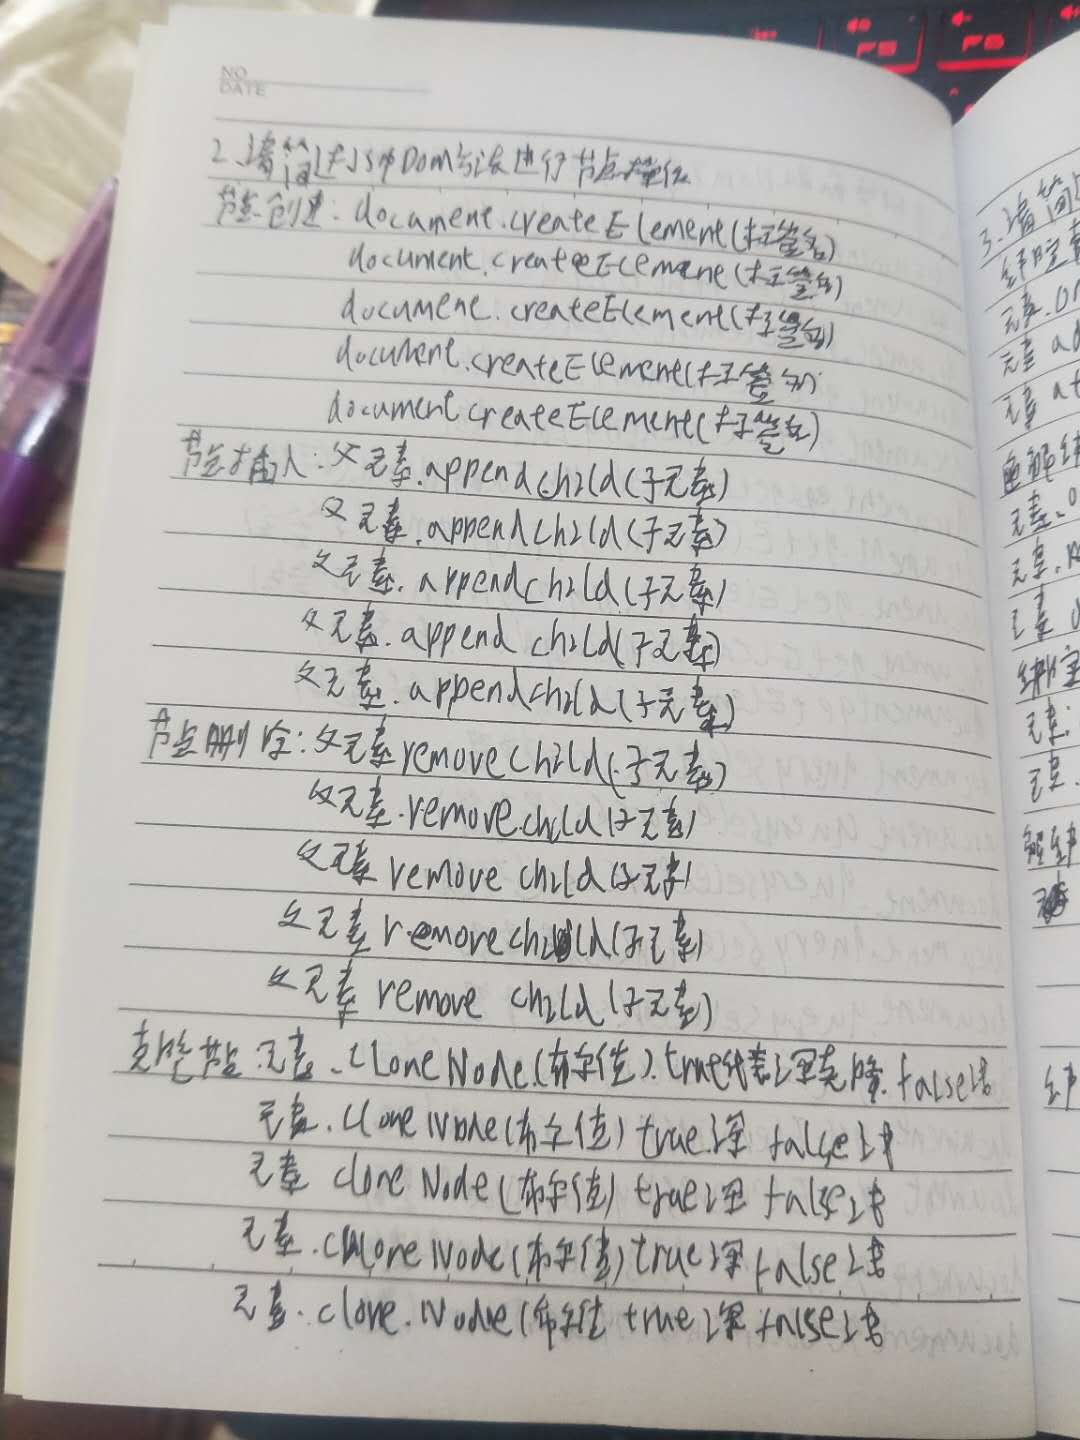 NO.
DATE
2.请简述JS中Dom方法进行节点操作
节点创建：document.createElement(标签名)
document.createElemene(标签名)
document.createElement(标签名)
document.createElement(标签名)
document.createElement(标签名)
节点插入：父元素.appendchild(子元素)
父元素.appendchild(子元素)
父元素.appendchild(子元素)
父元素.append child(子元素)
父元素.appendchild(子元素)
节点删除：父元素removechild(子元素)
父元素.remove.child(子元素)
父元素remove child(子元素)
父元素removechild(子元素)
父元素remove child(子元素)
克隆节点.元素.CloneNode(布尔值).true代表深克隆.false浅
元素.cloneNode(布尔值)true深 false浅
元素 cloneNode(布尔值) true深 false浅
元素.cloneNode(布尔值)true深false浅
元素.clone.Node(布尔值 true深false浅
3.请简
绑定
元素.on
元素 ad
元素 at
元素.
元素.
元素
绑定
元素.
元素.
解绑
F5
F6